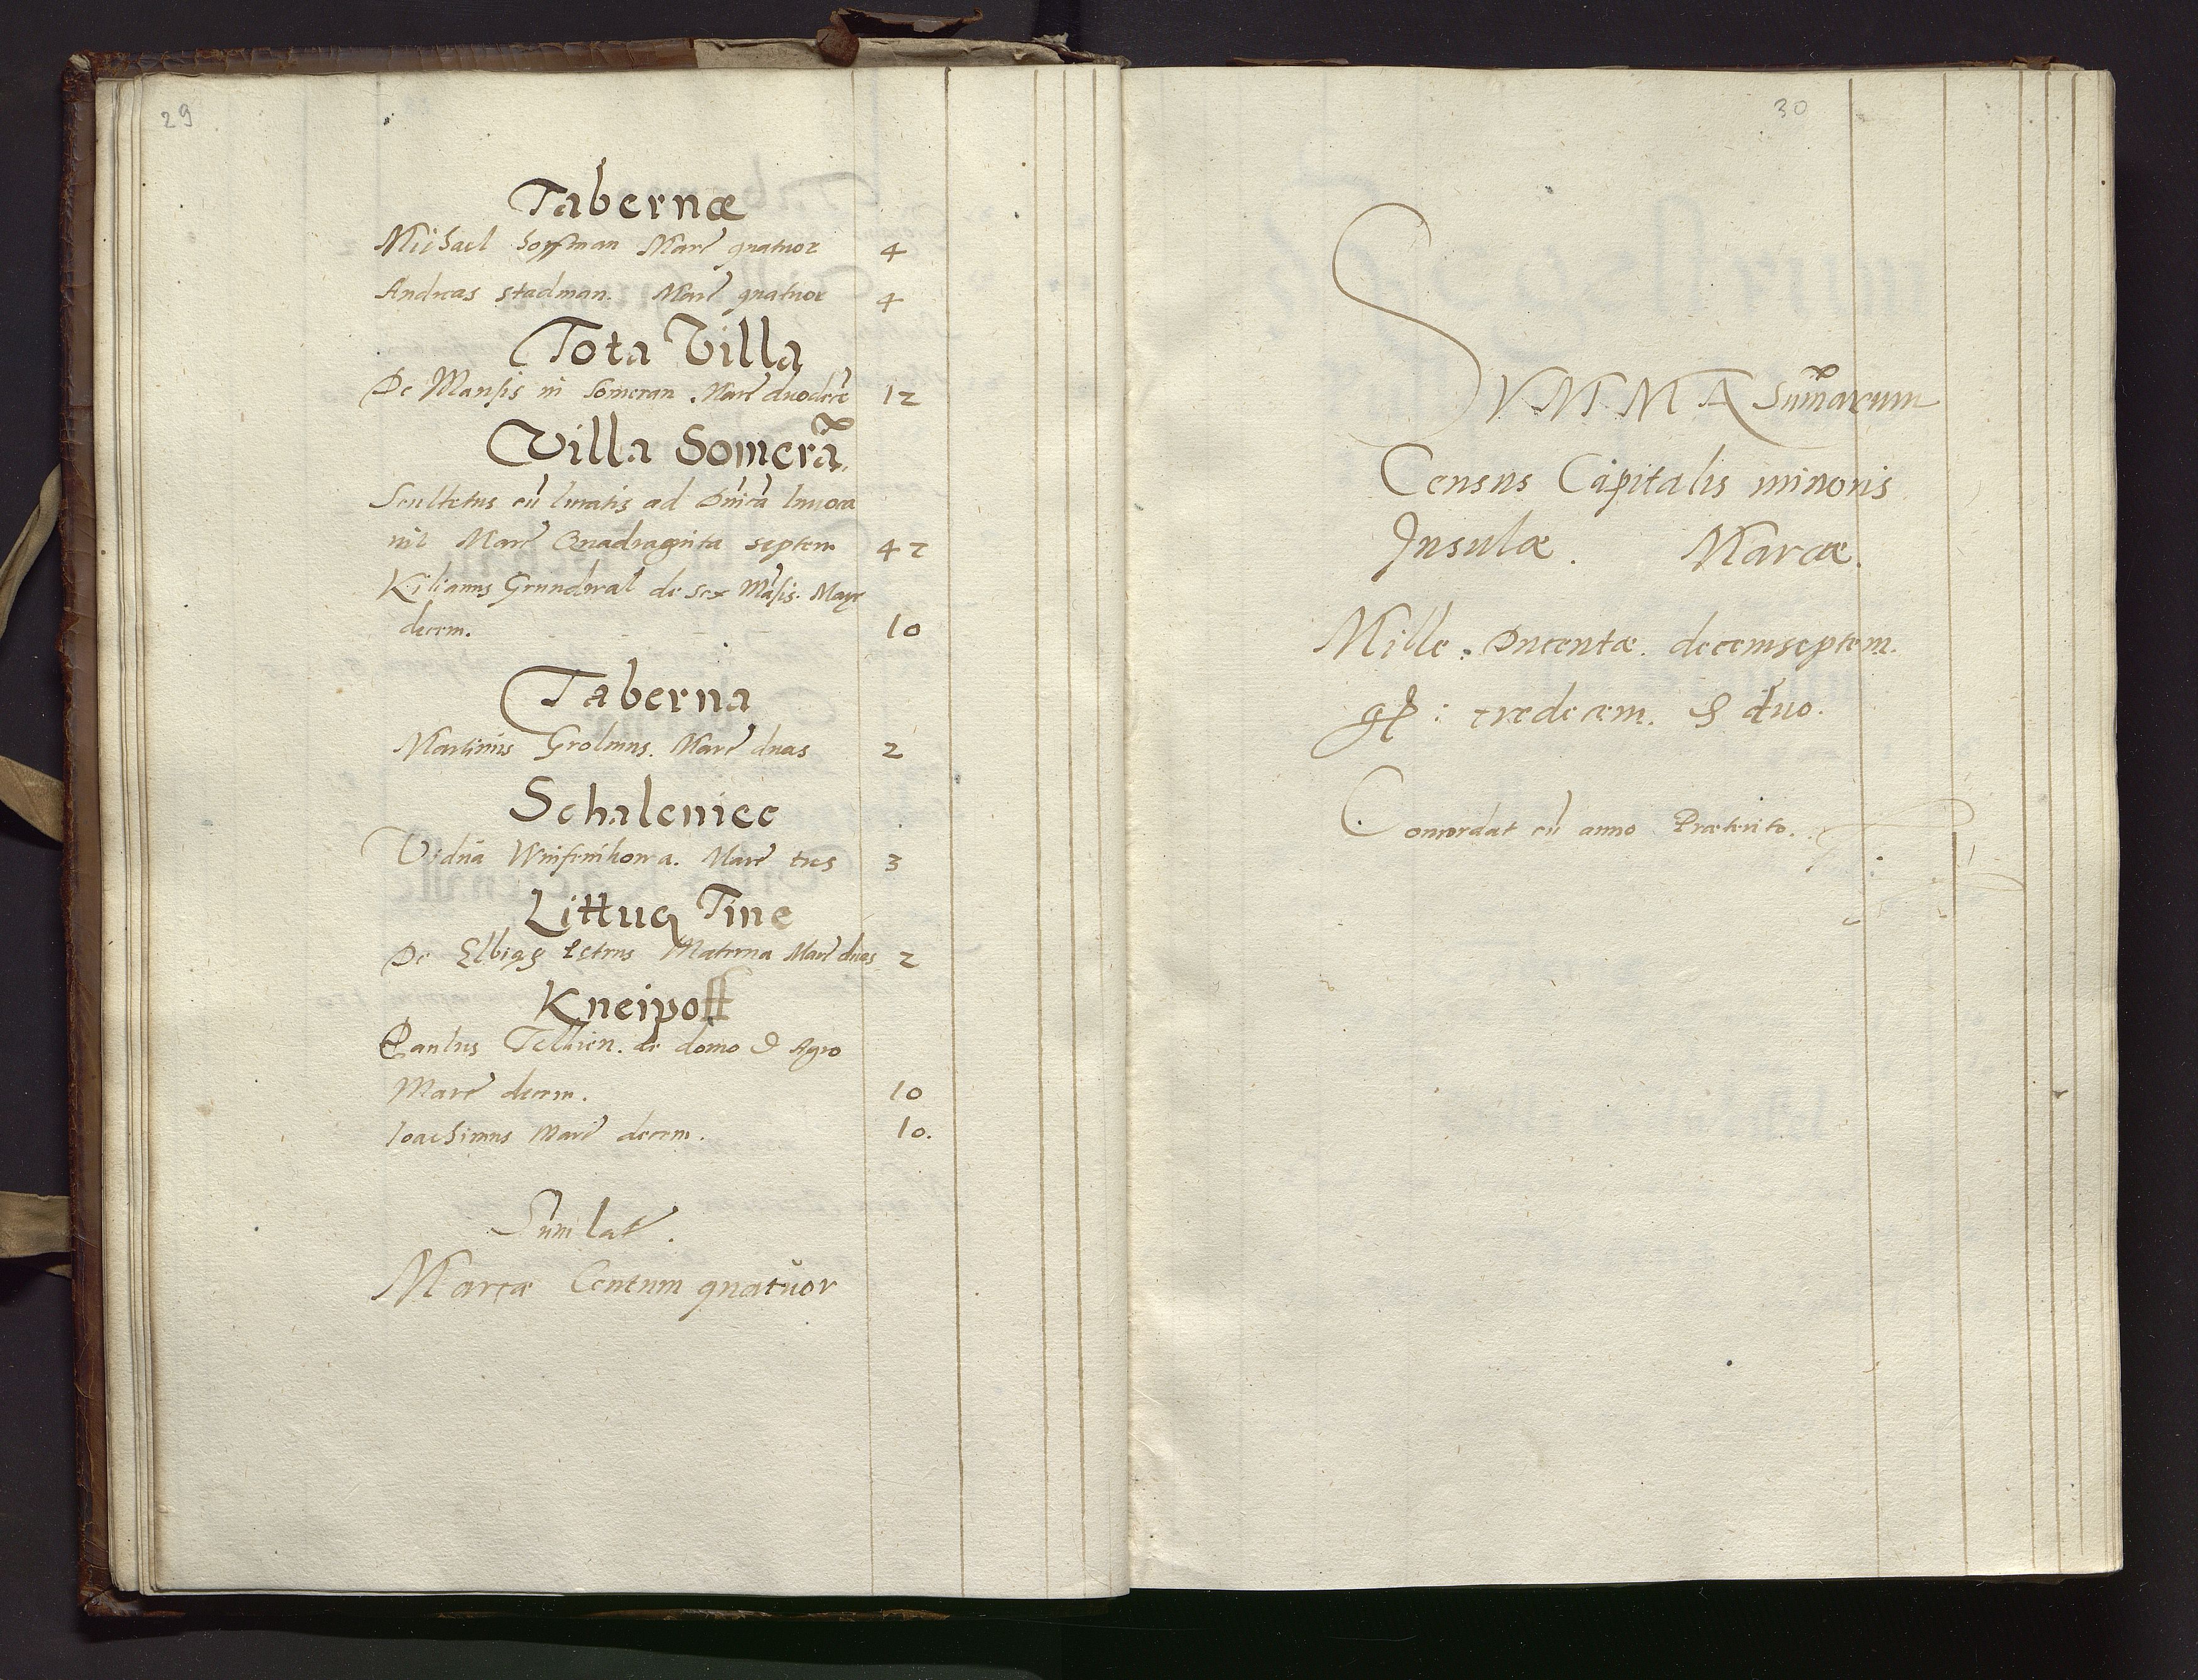 29
Tabernæ
Michael Hoffman Marc quatuor 4
Andreas Stadman. Marc quatuor 4
Tota Villa
De Mansis in Someran. Marc duodecē 12
Villa Somerā
Scultetus cū Iuratis ad
Marc Quadraginta septem 47
Kilianus Grundwal de sex Māsis. Marc
decem. 10
Taberna
Martinus Grolmus. Marc duas 2
Schaleniec
Vidua Marc tres 3
Littug Tine
De Petrus Materna Marc duas 2
Kneipoff
Paulus de domo & Agro
Marc decem. 10
Ioachimus Marc decem. 10.
Sum lat.
Marcæ Centum quatuor
30
SVMMA Sūmarum
Census Capitalis minoris
Insulæ. Marcæ.
Mille. Ducentæ. decemseptem.
gr: tredecem. & duo.
Concordat cū anno Præterito.